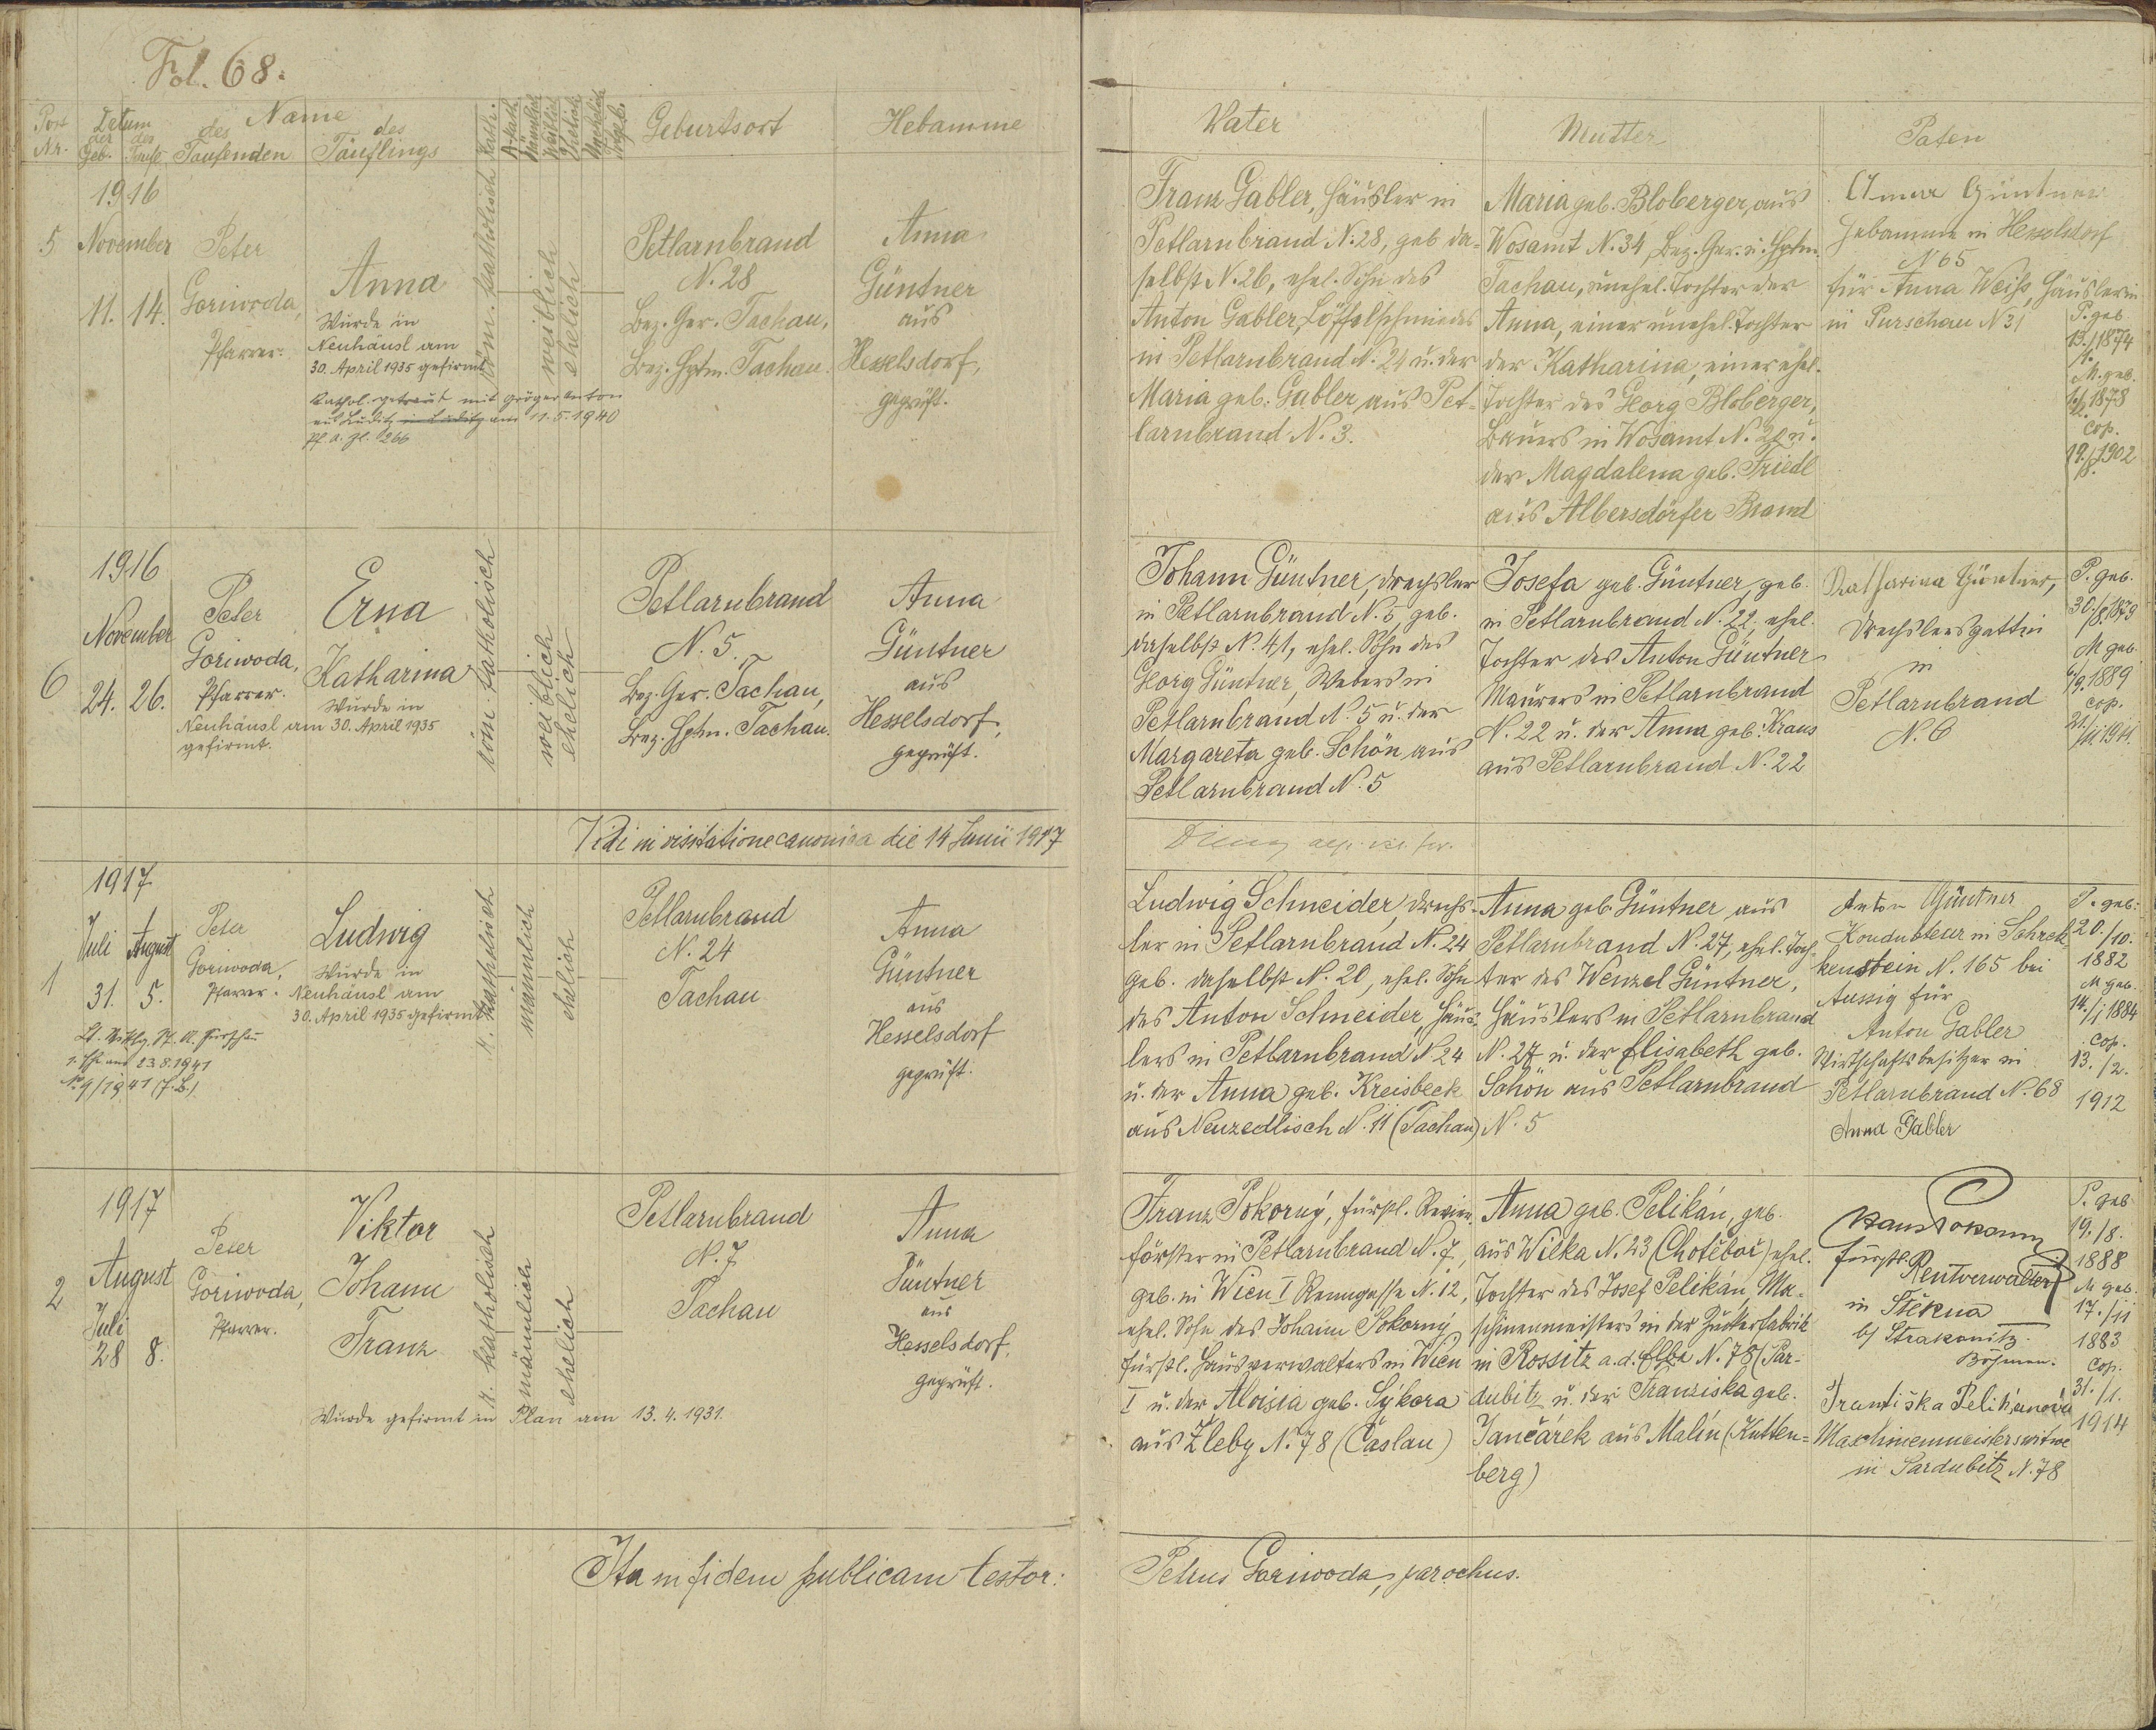 Fol. 68.
Post Nr.
Datum
der Geb.
des Tauf.
Name
des Taufenden
des Täuflings
Kath.
Akath.
Männlich
Weiblich
Ehelich
Unehelich
Geburtsort
Hebamme
Vater
Mutter
Paten
1916
5
November
11. 14.
Peter
Goriwoda,
Pfarrer.
Anna
Wurde in
Neuhäusl am
30. April 1935 gefirmt
Kathol. getraut mit Gröger Anton
aus Luditz in Luditz am 11.5.1940
röm. katholisch
weiblich
ehelich
Petlarnbrand
N. 28
Bez. Ger. Tachau,
Bez. Hptm. Tachau.
Anna
Güntner
aus
Hesselsdorf,
geprüft.
Franz Gabler, Häusler in
Petlarnbrand N. 28, geb. da=
selbst N. 26, ehel. Sohn des
Anton Gabler, Löffelschmiedes
in Petlarnbrand N. 24 u. der
Maria geb. Gabler aus Pet=
larnbrand N. 3.
Maria geb. Bloberger, aus
Wosamt N. 34, Bez. Ger. u. Hptm.
Tachau, unehel. Tochter der
Anna, einer unehel. Tochter
der Katharina, einer ehel.
Tochter des Georg Bloberger,
Bauers in Wosamt N. 21 u.
der Magdalena geb. Friedl
aus Albersdörfer Brand
Anna Güntner
Hebamme in Hesselsdorf
N 65
für Anna Weiß, Häuslerin
in Purschau N 31
P. geb.
13./1. 1874
M. geb.
1878
cop.
19./8. 1902
1916
6
November
24. 26.
Peter
Goriwoda,
Pfarrer.
Erna
Katharina
Wurde in
Neuhäusl am 30. April 1935
gefirmt.
röm. katholisch
weiblich
ehelich
Petlarnbrand
N. 5.
Bez. Ger. Tachau,
Bez. Hptm. Tachau.
Anna
Güntner
aus
Hesselsdorf,
geprüft.
Johann Güntner, Drechsler
in Petlarnbrand N. 5, geb.
daselbst N. 41, ehel. Sohn des
Georg Güntner, Webers in
Petlarnbrand N. 5 u. der
Margareta geb. Schön aus
Petlarnbrand N. 5
Josefa geb. Güntner, geb.
in Petlarnbrand N. 22, ehel.
Tochter des Anton Güntner
Maurers in Petlarnbrand
N. 22 u. der Anna geb. Kraus
aus Petlarnbrand N. 22
Katharina Güntner,
Drechslersgattin
in
Petlarnbrand
N. 6
P. geb.
30./8. 1879
M. geb.
6/9. 1889
cop.
21./11. 1911.
Vidi in visitatione canonica die 14 Junii 1917
1917
1
Juli August
31. 5.
Peter
Goriwoda,
Pfarrer.
Ludwig
Wurde in
Neuhäusl am
30. April 1935 gefirmt
23.8.1941
No 9/1941
r. katholisch
männlich
ehelich
Petlarnbrand
N. 24
Tachau
Anna
Güntner
aus
Hesselsdorf
geprüft.
Ludwig Schneider, Drechs=
ler in Petlarnbrand N. 24
geb. daselbst N. 20, ehel. Sohn
des Anton Schneider, Häus=
lers in Petlarnbrand N. 24
u. der Anna geb. Kreisbeck
aus Neuzedlisch N. 11 (Tachau)
Anna geb. Güntner, aus
Petlarnbrand N. 27, ehel. Toch=
ter des Wenzel Güntner,
Häuslers in Petlarnbrand
N. 27 u. der Elisabeth geb.
Schön aus Petlarnbrand
N. 5
Anton Güntner
Kondukteur in Schrek=
kenstein N. 165 bei
Aussig für
Anton Gabler
Wirtschaftsbesitzer in
Petlarnbrand N. 68
Anna Gabler
P. geb.
20./10.
1882
M. geb.
14./1. 1884
cop.
13./2.
1912
1917
2
August
Juli
28 8.
Peter
Goriwoda,
Pfarrer.
Viktor
Johann
Franz
Wurde gefirmt in Plan am 13.4.1931.
r. katholisch
männlich
ehelich
Petlarnbrand
N. 7
Tachau
Anna
Güntner
aus
Hesselsdorf,
geprüft.
Franz Pokorný, fürstl. Revier=
förster in Petlarnbrand N. 7,
geb. in Wien I Renngasse N. 12,
ehel. Sohn des Johann Pokorný
fürstl. Hausverwalters in Wien
I u. der Aloisia geb. Sýkora
aus Žleby N. 78 (Časlau)
Anna geb. Pelikán, geb.
aus Wilka N. 23 (Chotěboř) ehel.
Tochter des Josef Pelikán, Ma=
schinenmeisters in der Zuckerfabrik
in Rossitz a. d. Elbe N. 78 (Par=
dubitz u. der Franziska geb.
Jančárek aus Malín (Kutten=
berg)
fürstl.
Rentverwalter
in Štěkna
b/ Strakonitz
Böhmen.
Františka Pelikánová
Maschinenmeisterswitwe
in Pardubitz N. 78
P. geb.
19./8.
1888
M. geb.
17./11
1883
Cop.
31./1.
1914
Ita in fidem publicam testor:
Petrus Goriwoda, parochus.